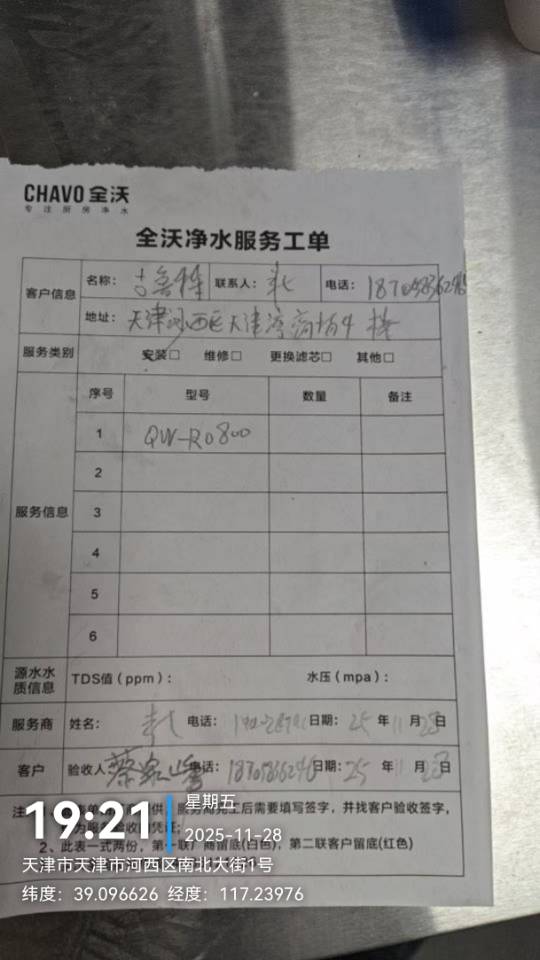 CHAVO 全沃
专注厨房净水
全沃净水服务工单
客户信息 名称： 吉鲁特 联系人： 电话：
地址： 天津河西区天津湾商场4楼
服务类别 安装□ 维修□ 更换滤芯□ 其他□
服务信息 序号 型号 数量 备注
1 QW-RO800
2
3
4
5
6
源水水质信息 TDS值（ppm）： 水压（mpa）：
服务商 姓名： 电话： 日期： 25 年 11 月 28 日
客户 验收人 电话： 日期： 25 年 11 月 28 日
注
2、此表一式两份，第一联厂商留底(白色)，第二联客户留底(红色)
19:21 星期五
2025-11-28
天津市天津市河西区南北大街1号
纬度：39.096626 经度：117.23976